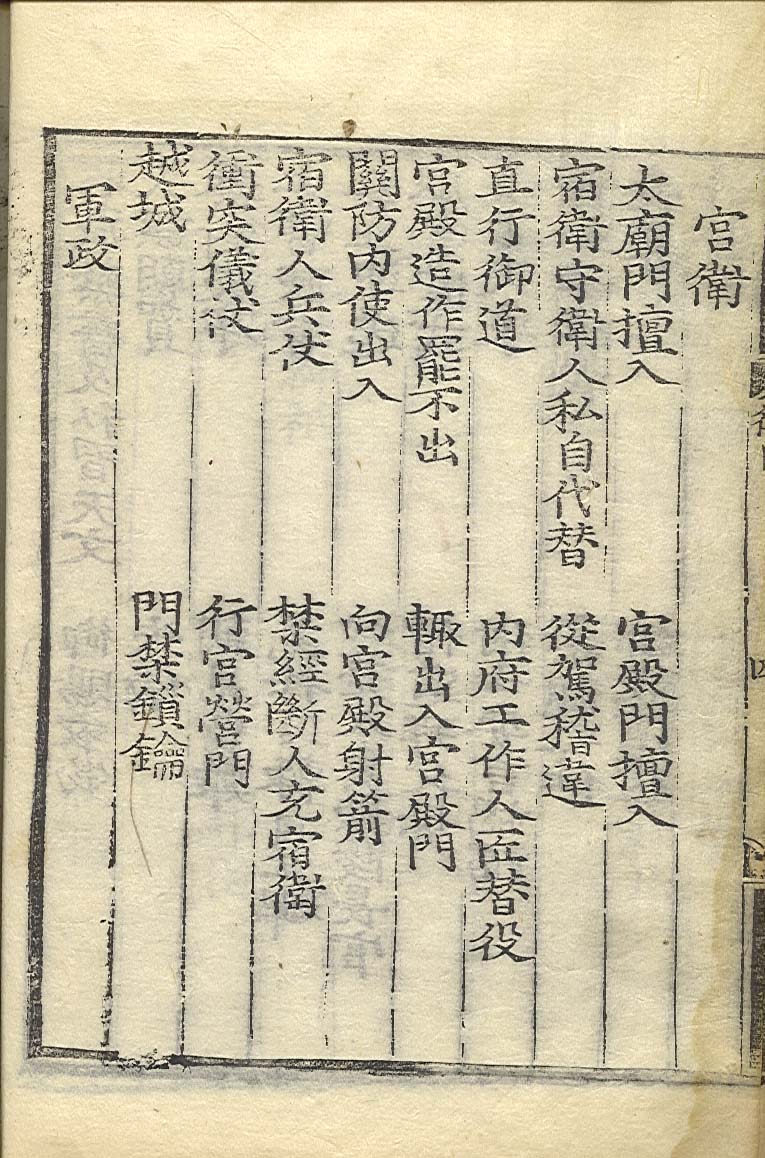 宮衛
太廟門擅入　宮殿門擅入
宿衛守衛人私自代替　從駕稽違
直行御道　內府工作人匠替役
宮殿造作罷不出　輙出入宮殿門
關防內使出入　向宮殿射箭
宿衛人兵仗　禁經斷人充宿衛
衝突儀仗　行宮營門
越城　門禁鎖鑰
軍政